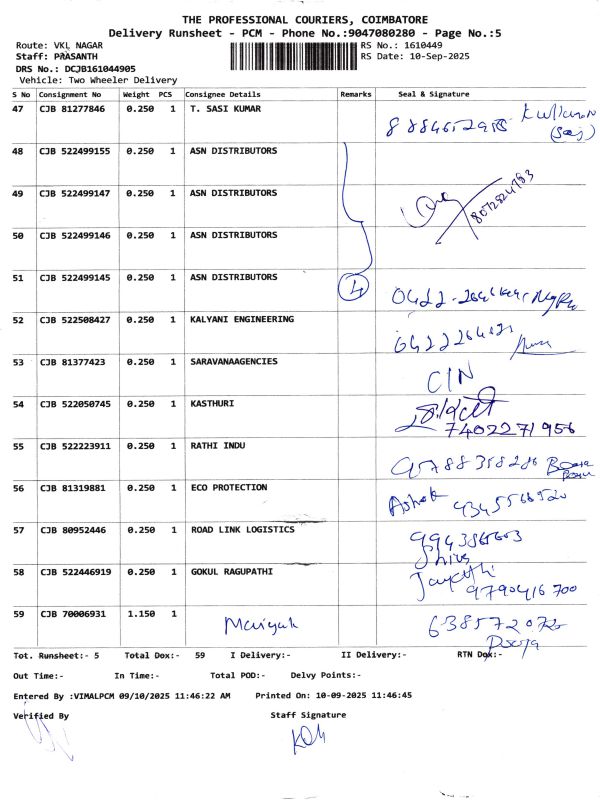 THE PROFESSIONAL COURIERS, COIMBATORE
Delivery Runsheet - PCM - Phone No.:9047080280 - Page No.:5
Route: VKL NAGAR RS No.: 1610449
Staff: PRASANTH RS Date: 10-Sep-2025
DRS No.: DCJB161044905
Vehicle: Two Wheeler Delivery
S No Consignment No Weight PCS Consignee Details Remarks Seal & Signature
47 CJB 81277846 0.250 1 T. SASI KUMAR
48 CJB 522499155 0.250 1 ASN DISTRIBUTORS
49 CJB 522499147 0.250 1 ASN DISTRIBUTORS 8072824783
50 CJB 522499146 0.250 1 ASN DISTRIBUTORS
51 CJB 522499145 0.250 1 ASN DISTRIBUTORS 4 0422
52 CJB 522508427 0.250 1 KALYANI ENGINEERING
53 CJB 81377423 0.250 1 SARAVANAAGENCIES C/N
54 CJB 522050745 0.250 1 KASTHURI 7402271956
55 CJB 522223911 0.250 1 RATHI INDU
56 CJB 81319881 0.250 1 ECO PROTECTION Ashok
57 CJB 80952446 0.250 1 ROAD LINK LOGISTICS
58 CJB 522446919 0.250 1 GOKUL RAGUPATHI 9790416700
59 CJB 70006931 1.150 1
Tot. Runsheet:- 5 Total Dox:- 59 I Delivery:- II Delivery:- RTN Dox:-
Out Time:- In Time:- Total POD:- Delvy Points:-
Entered By :VIMALPCM 09/10/2025 11:46:22 AM Printed On: 10-09-2025 11:46:45
Verified By Staff Signature